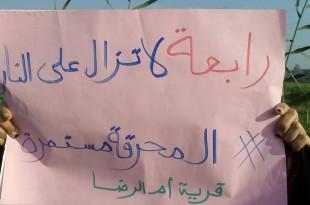 رابعة لا تزال على النار
# المحرقة مستمرة
قرية أم الرضا